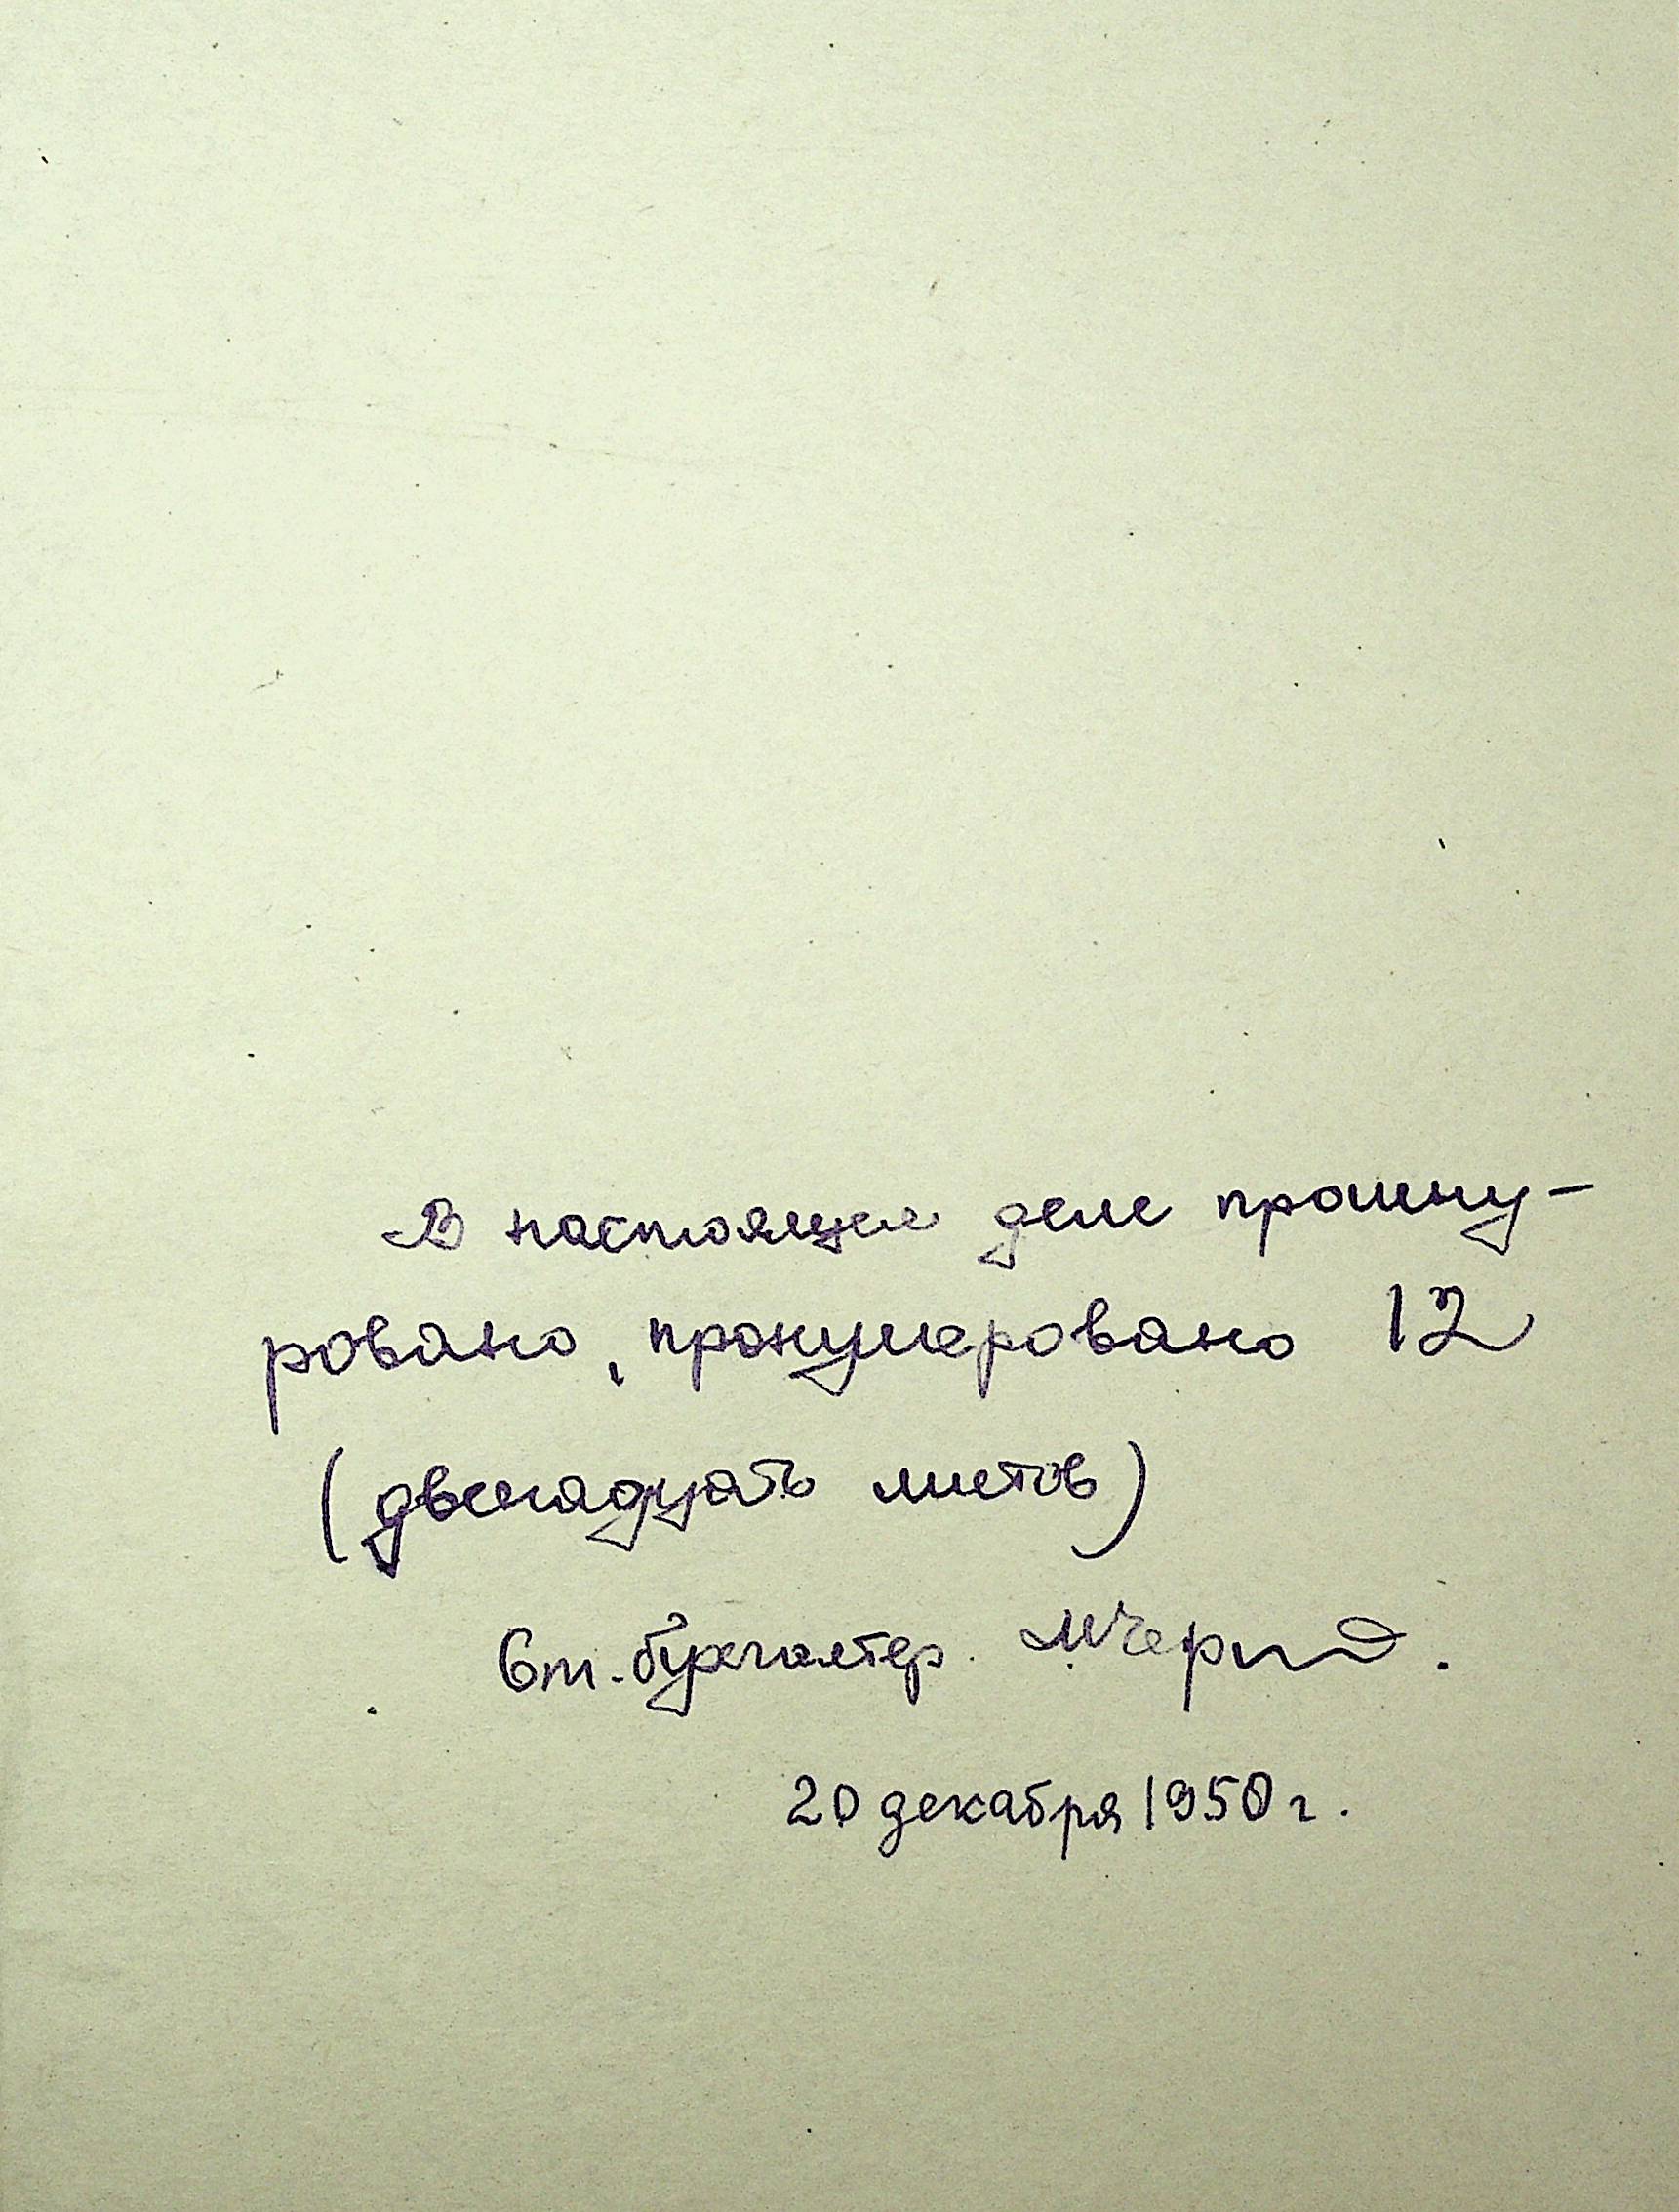 В настоящем деле прошну-
ровано, пронумеровано 12
(двенадцать листов)
Ст. бухгалтер.
20 декабря 1950 г.